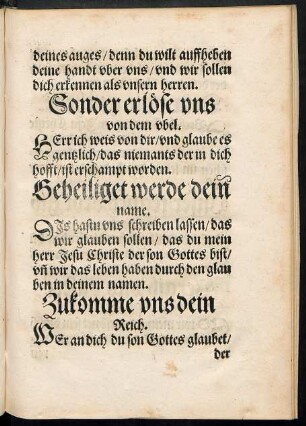 deines auges/ denn du wilt auffheben
deine handt vber vns/ vnd wir sollen
dich erkennen als vnsern herren.
Sonder erlöse vns
von dem vbel.
HErr ich weis von dir/ vnd glaube es
gentzlich/ das niemants der in dich
hofft/ ist erschampt worden.
Geheiliget werde dein
name.
DIs hastu vns schreiben lassen/ das
wir glauben sollen/ das du mein
herr Jesu Christe der son Gottes bist/
vñ wir das leben haben durch den glau
ben in deinem namen.
Zukomme vns dein
Reich.
WEr an dich du son Gottes glaubet/
der